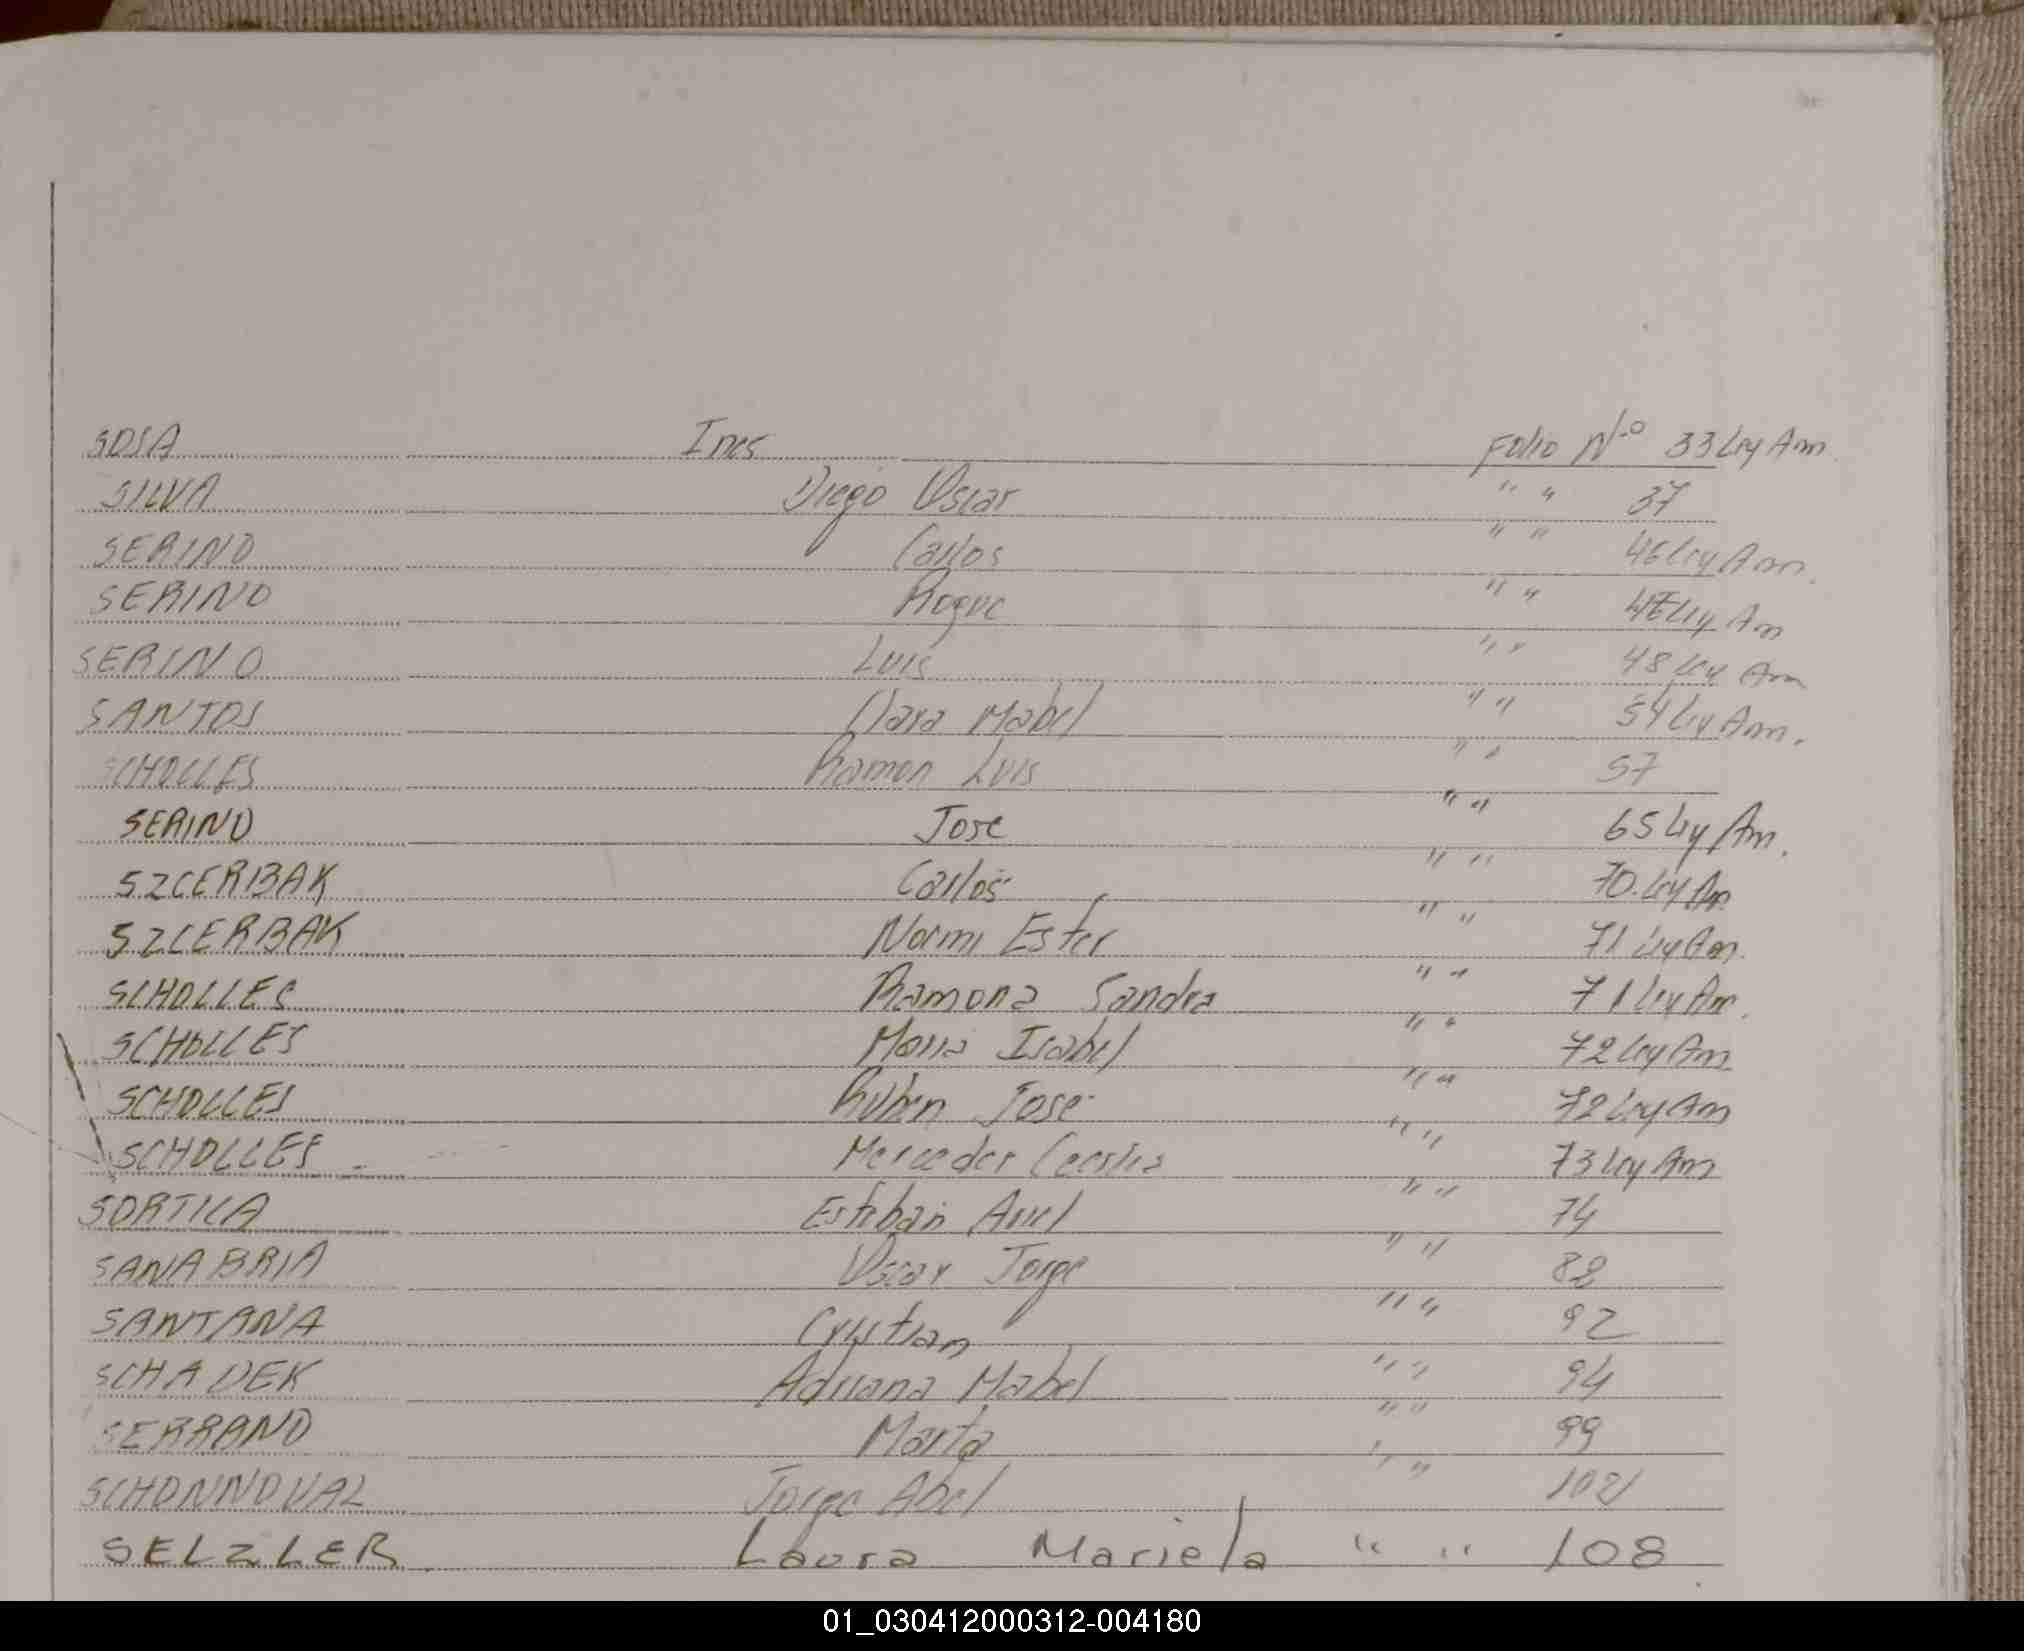 SOSA Ines Folio N-o 33 Ley Am.
SILVA Diego Oscar " " 37
SERINO Carlos " " 46 Ley Am.
SERINO Roque " " Ley Am
SERINO Luis " " 48 Ley Am
SANTOS Clara Mabel " " 54 Ley Am.
SCHOLLES Ramon Luis " " 57
SERINO Jose " " 65 Ley Am.
SZCERBAK Carlos " " 70 Ley Am
SZCERBAK Normi Ester " " 71 Ley Am.
SCHOLLES Ramona Sandra " " 71 Ley Am.
SCHOLLES Maria Isabel " " 72 Ley Am
SCHOLLES Ruben Jose " " 72 Ley Am
SCHOLLES Mercedes Cecilia " " 73 Ley Am
SORTICA Esteban Ariel " " 74
SANABRIA Oscar Jorge " " 82
SANTANA Crystian " " 92
SCHADEK Adriana Mabel " " 94
SERRANO Marta " " 99
SCHONNOVAL Jorge Abel " "
SELZLER Laura Mariela " " 108
01_030412000312-004180